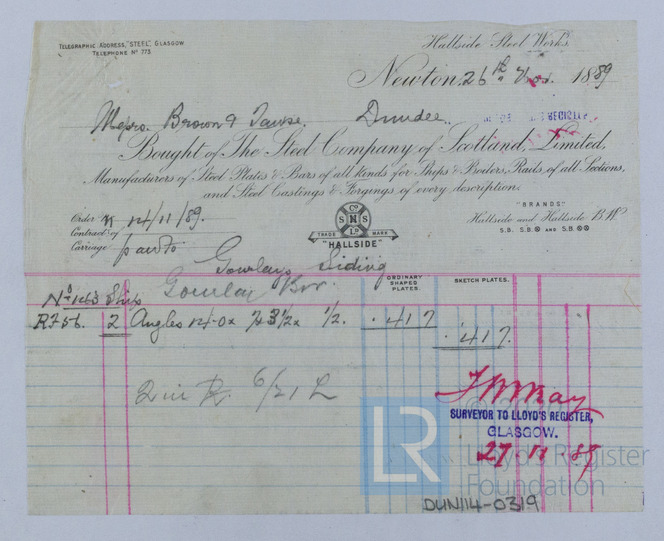 TELEGRAPHIC ADDRESS, "STEEL," GLASGOW
TELEPHONE Nº 773
Hallside Steel Works.
Newton, 26th Nov. 1889
Messrs. Brown & Tawse. Dundee.
Bought of The Steel Company of Scotland, Limited,
Manufacturers of Steel Plates & Bars of all kinds for Ships & Boilers, Rails of all Sections,
and Steel Castings & Forgings of every description.
"BRANDS"
Hallside and Hallside B.W.
S.B. S.B. AND S.B.
Order 14/11/89.
Contract of
Carriage paid to
Cº
S H S
Lº
TRADE MARK
"HALLSIDE"
Gourlays Siding
Gourlay Bros.
ORDINARY SHAPED PLATES.
SKETCH PLATES.
Nº 163 Ship
RF56. 2 Angles 14-0 x 3½ x ½. .417
.417.
6/21 L
SURVEYOR TO LLOYD'S REGISTER,
GLASGOW.
27.11.89
LR
Lloyd's Register
Foundation
DUN14-0319